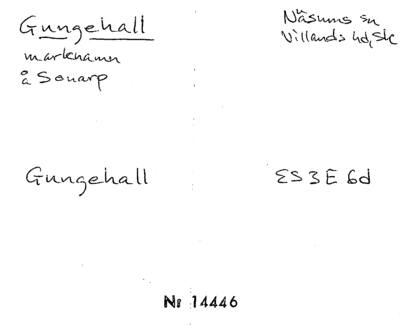 Gungehall
Näsums sn
marknamn
Villands hd, Sk
å Sonarp
Gungehall
ES 3 E 6d
Nr 14446